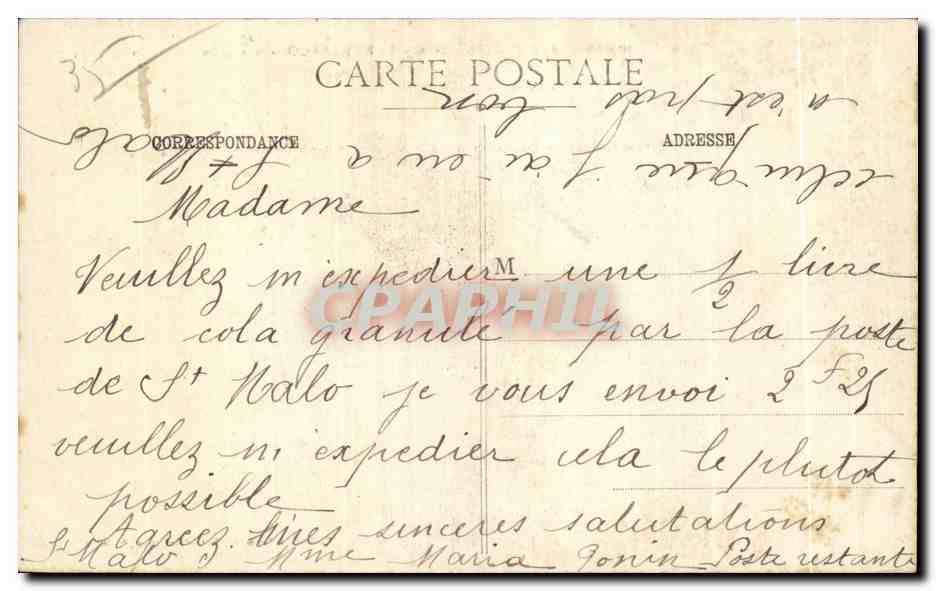 35
CARTE POSTALE
CORRESPONDANCE
ADRESSE
Madame
Veuillez m'expedier M une 1/2 livre
de cola granulé par la poste
de St Malo je vous envoi 2 F 25
veuillez m'expedier cela le plutot
possible
Agreez mes sinceres salutations
St Malo Mme Maria Poste restante
celui que j'ai eu a St Malo
n'est pas bon
CPAPHIL